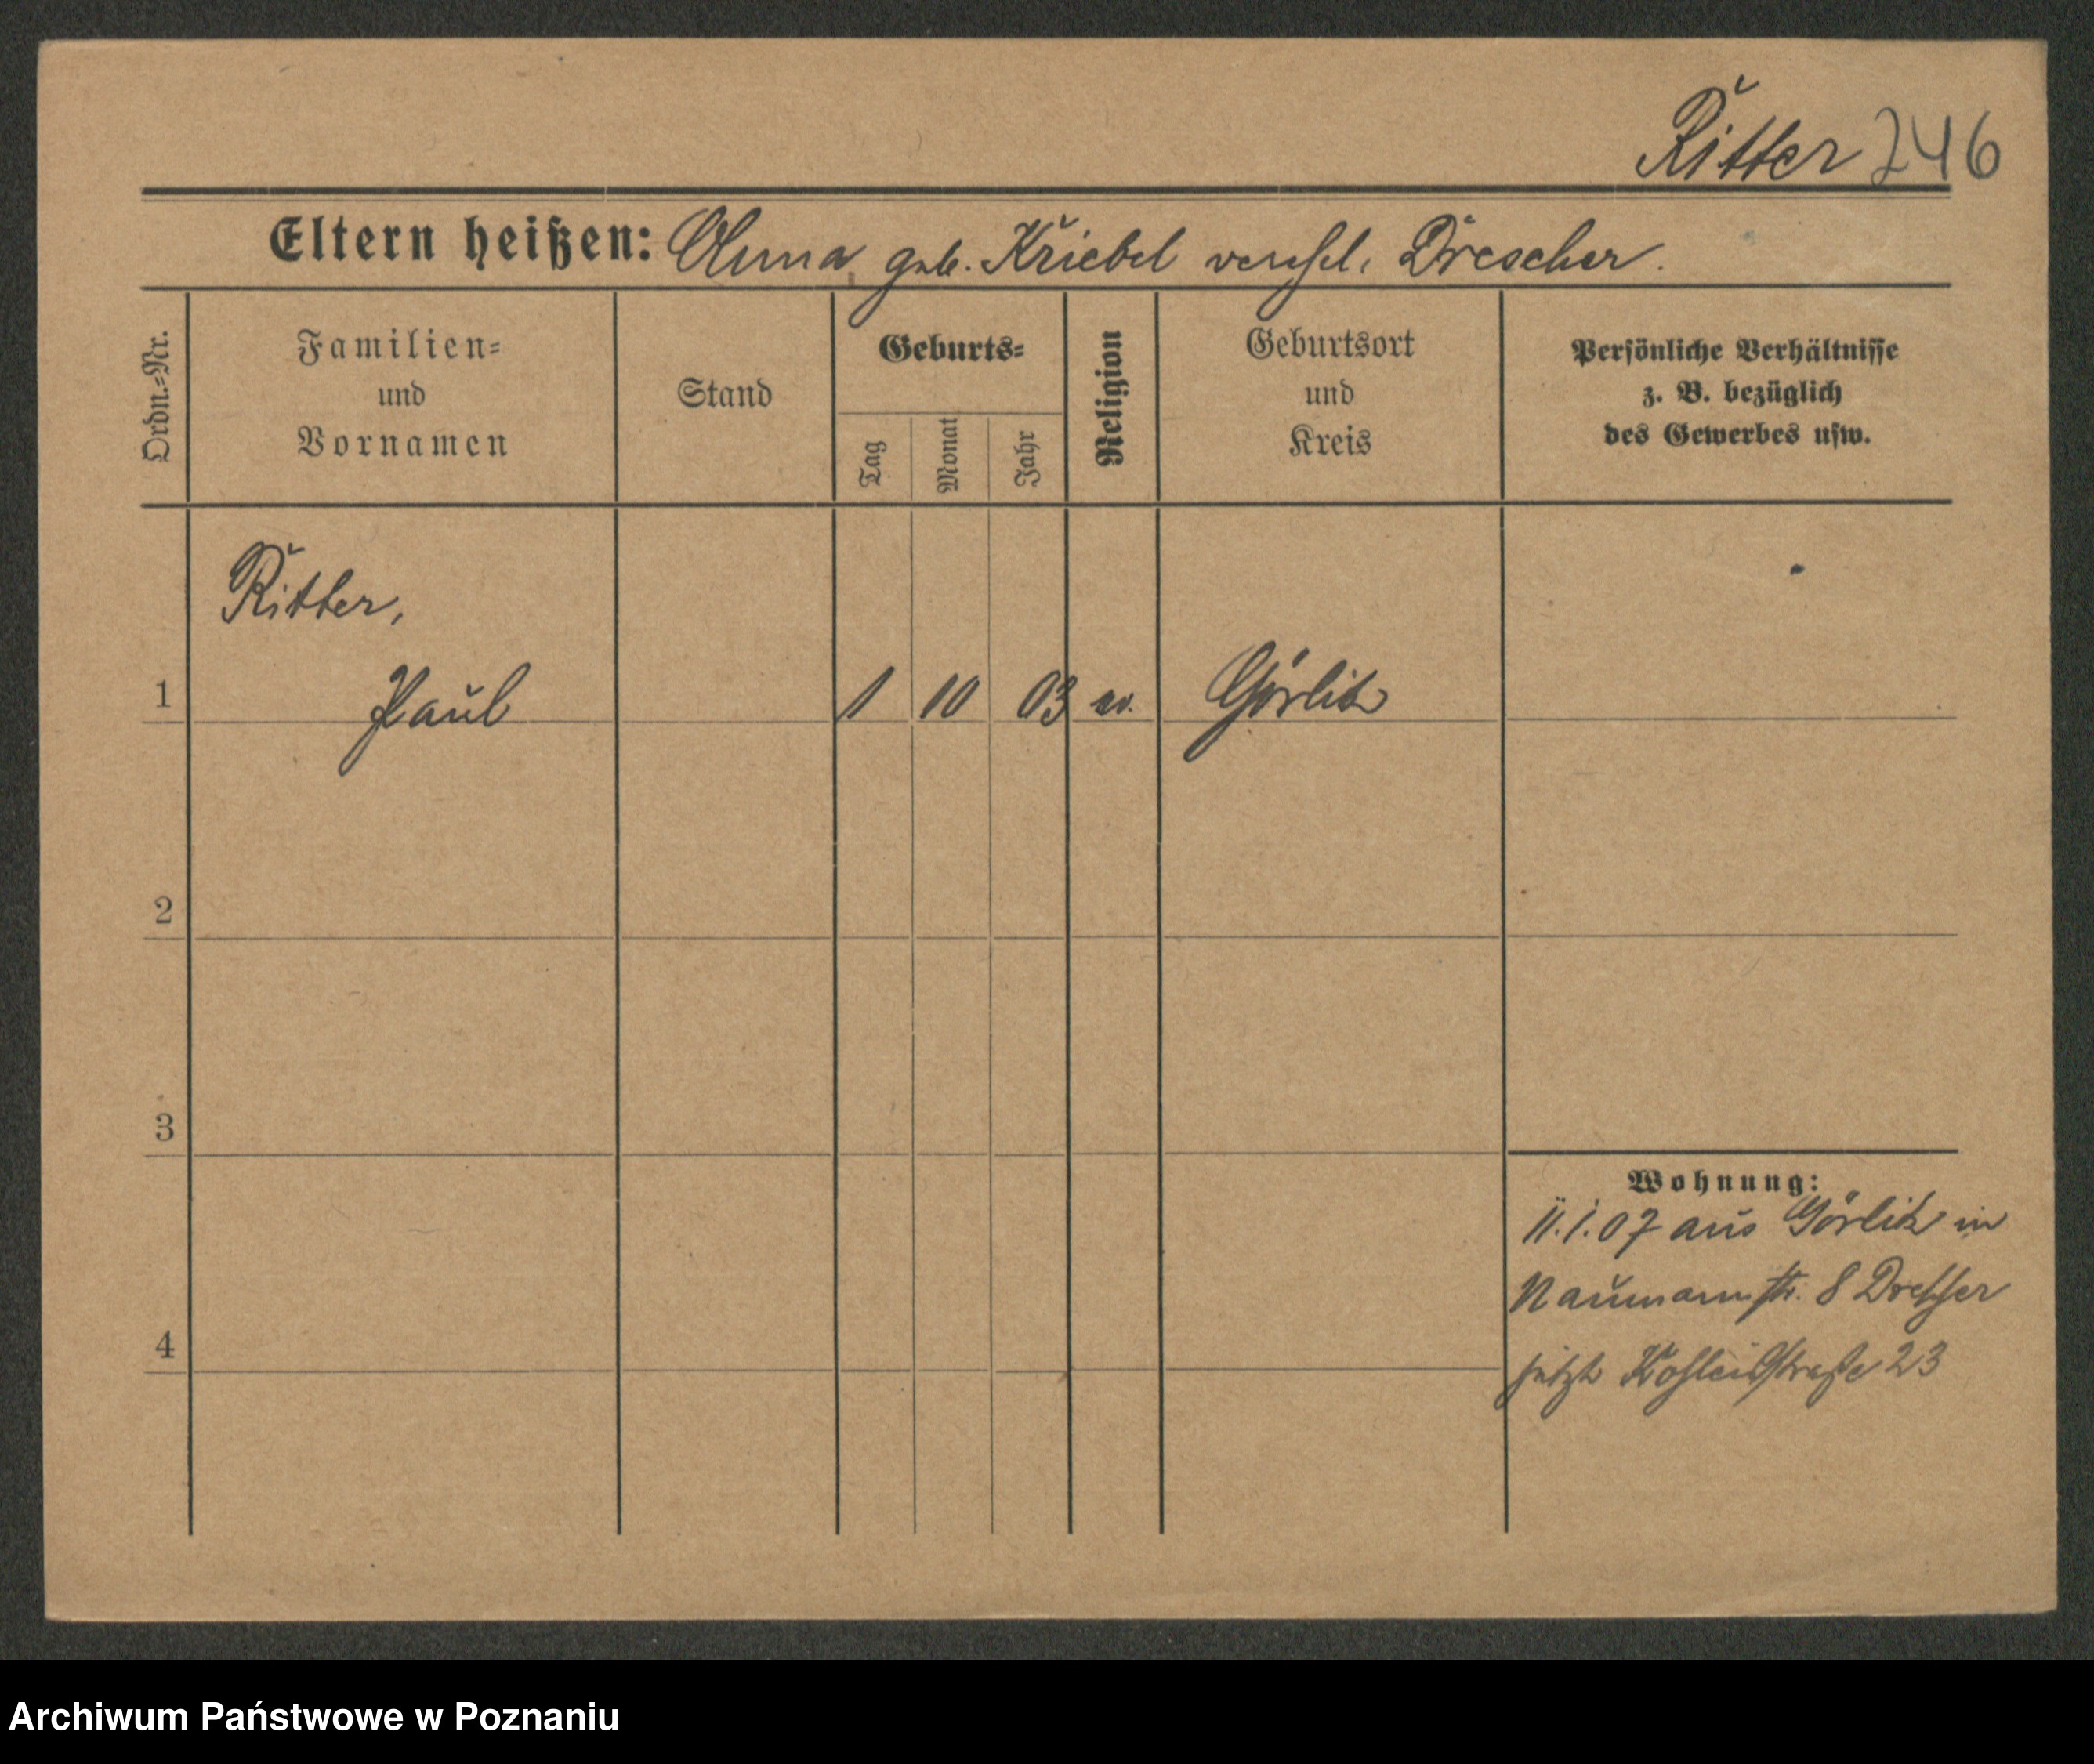 Ritter 246
Eltern heißen: Anna geb. Kriebel verehel. Drescher.
Ordn.=Nr.
Familien=
und
Vornamen
Stand
Geburts=
Tag
Monat
Jahr
Religion
Geburtsort
und
Kreis
Persönliche Verhältnisse
z. B. bezüglich
des Gewerbes usw.
Ritter,
1 Paul 1 10 03 ev. Görlitz
2
3
4
Wohnung:
11.1.07 aus Görlitz in
Naumannstr. 8
jetzt 23
Archiwum Państwowe w Poznaniu